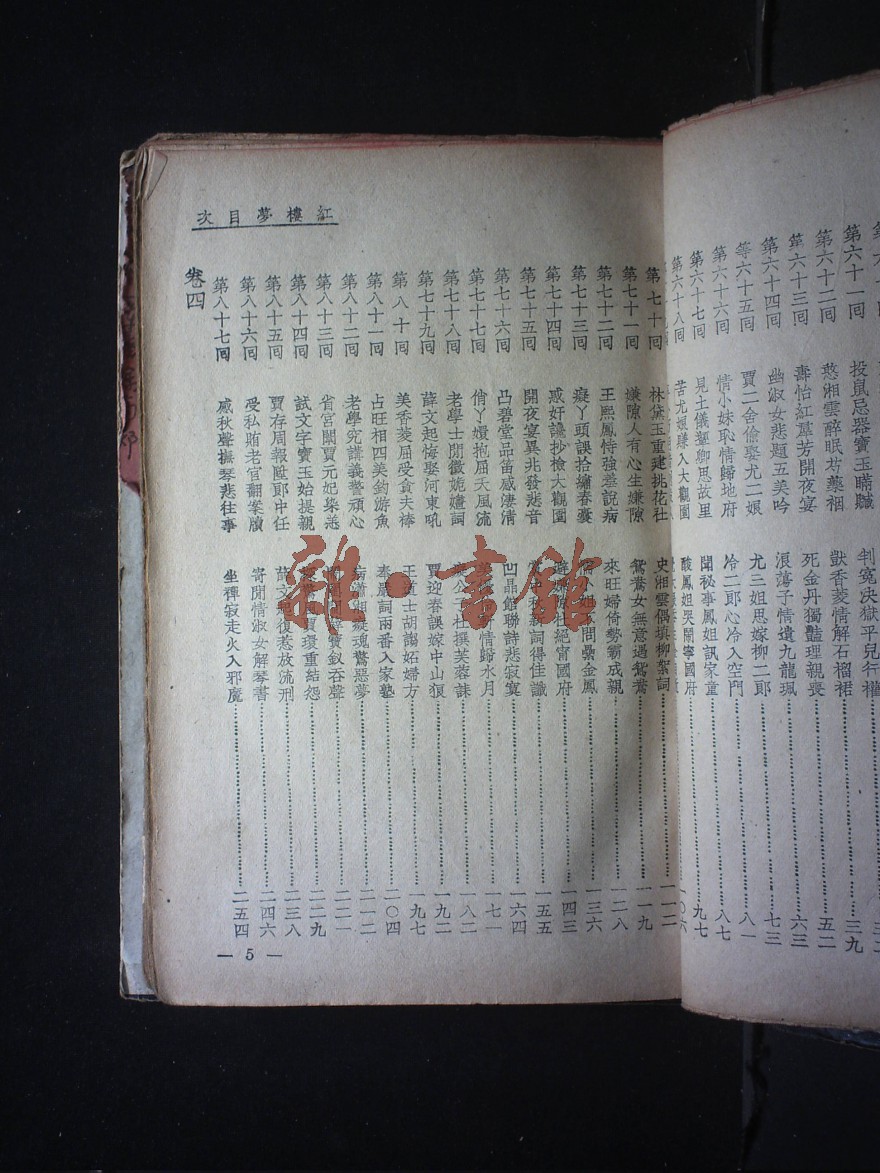 紅樓夢目次
第六十一回 投鼠忌器寶玉瞞贓 判冤決獄平兒行權 三九
第六十二回 憨湘雲醉眠芍藥裀 獃香菱情解石榴裙 五二
第六十三回 壽怡紅羣芳開夜宴 死金丹獨豔理親喪 六三
第六十四回 幽淑女悲題五美吟 浪蕩子情遺九龍珮 七三
等六十五回 賈二舍偷娶尤二姨 尤三姐思嫁柳二郎 八一
第六十六回 情小妹恥情歸地府 冷二郎心冷入空門 八七
第六十七回 見土儀顰卿思故里 聞秘事鳳姐訊家童 九七
第六十八回 苦尤娘賺入大觀園 酸鳳姐哭鬧寧國府 一〇六
第七十回 林黛玉重建桃花社 史湘雲偶填柳絮詞 一一二
第七十一回 嫌隙人有心生嫌隙 鴛鴦女無意遇鴛鴦 一一九
第七十二回 王熙鳳恃強羞說病 來旺婦倚勢霸成親 一二八
第七十三回 癡丫頭誤拾繡春囊 問纍金鳳 一三六
第七十四回 惑奸讒抄檢大觀園 絕寧國府 一四三
第七十五回 開夜宴異兆發悲音 新詞得佳讖 一五五
第七十六回 凸碧堂品笛感凄清 凹晶館聯詩悲寂寞 一六四
第七十七回 俏丫嬛抱屈夭風流 情歸水月 一七一
第七十八回 老學士閒徵姽嫿詞 公子杜撰芙蓉誄 一八二
第七十九回 薛文起悔娶河東吼 賈迎春誤嫁中山狼 一九二
第八十回 美香菱屈受貪夫棒 王道士胡謅妬婦方 一九七
第八十一回 占旺相四美釣游魚 奉嚴詞兩番入家塾 二〇四
第八十二回 老學究講義警頑心 病瀟湘癡魂驚惡夢 二一二
第八十三回 省宮闈賈元妃染恙 寶釵吞聲 二二一
第八十四回 試文字寶玉始提親 環重結怨 二二九
第八十五回 賈存周報陞郎中任 薛文起復惹放流刑 二三八
第八十六回 受私賄老官翻案牘 寄閒情淑女解琴書 二四六
第八十七回 感秋聲撫琴悲往事 坐禪寂走火入邪魔 二五四
卷四
— 5 —
雜·書館